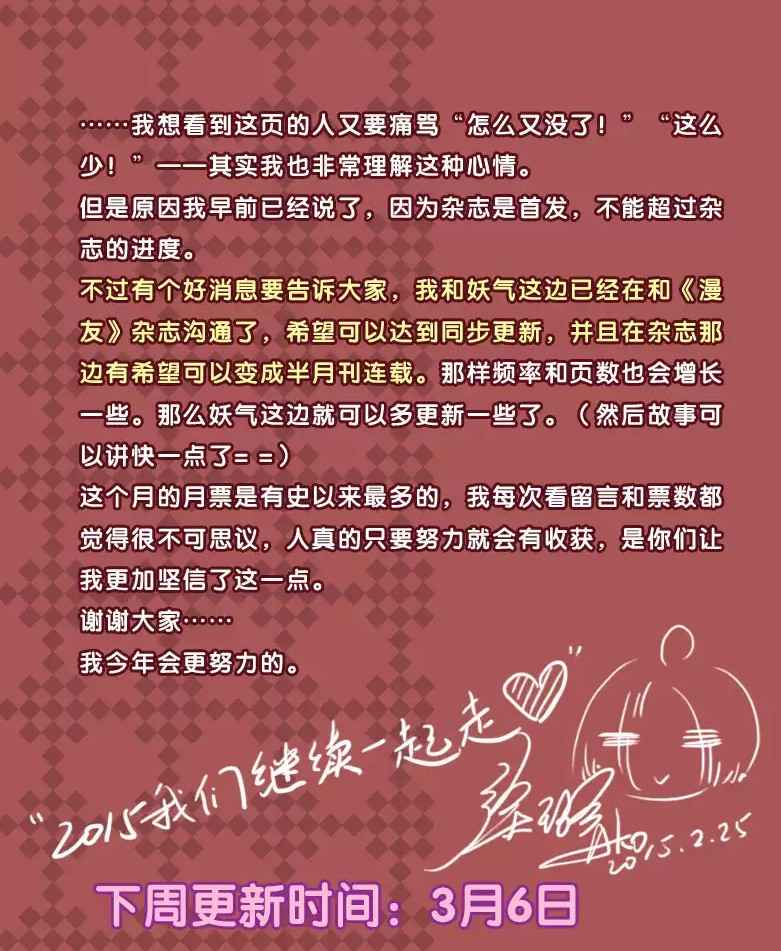 ……我想看到这页的人又要痛骂“怎么又没了！”“这么
少！”——其实我也非常理解这种心情。
但是原因我早前已经说了，因为杂志是首发，不能超过杂
志的进度。
不过有个好消息要告诉大家，我和妖气这边已经在和《漫
友》杂志沟通了，希望可以达到同步更新，并且在杂志那
边有希望可以变成半月刊连载。那样频率和页数也会增长
一些。那么妖气这边就可以多更新一些了。（然后故事可
以讲快一点了= =）
这个月的月票是有史以来最多的，我每次看留言和票数都
觉得很不可思议，人真的只要努力就会有收获，是你们让
我更加坚信了这一点。
谢谢大家……
我今年会更努力的。
“2015我们继续一起走”
2015.2.25
下周更新时间：3月6日